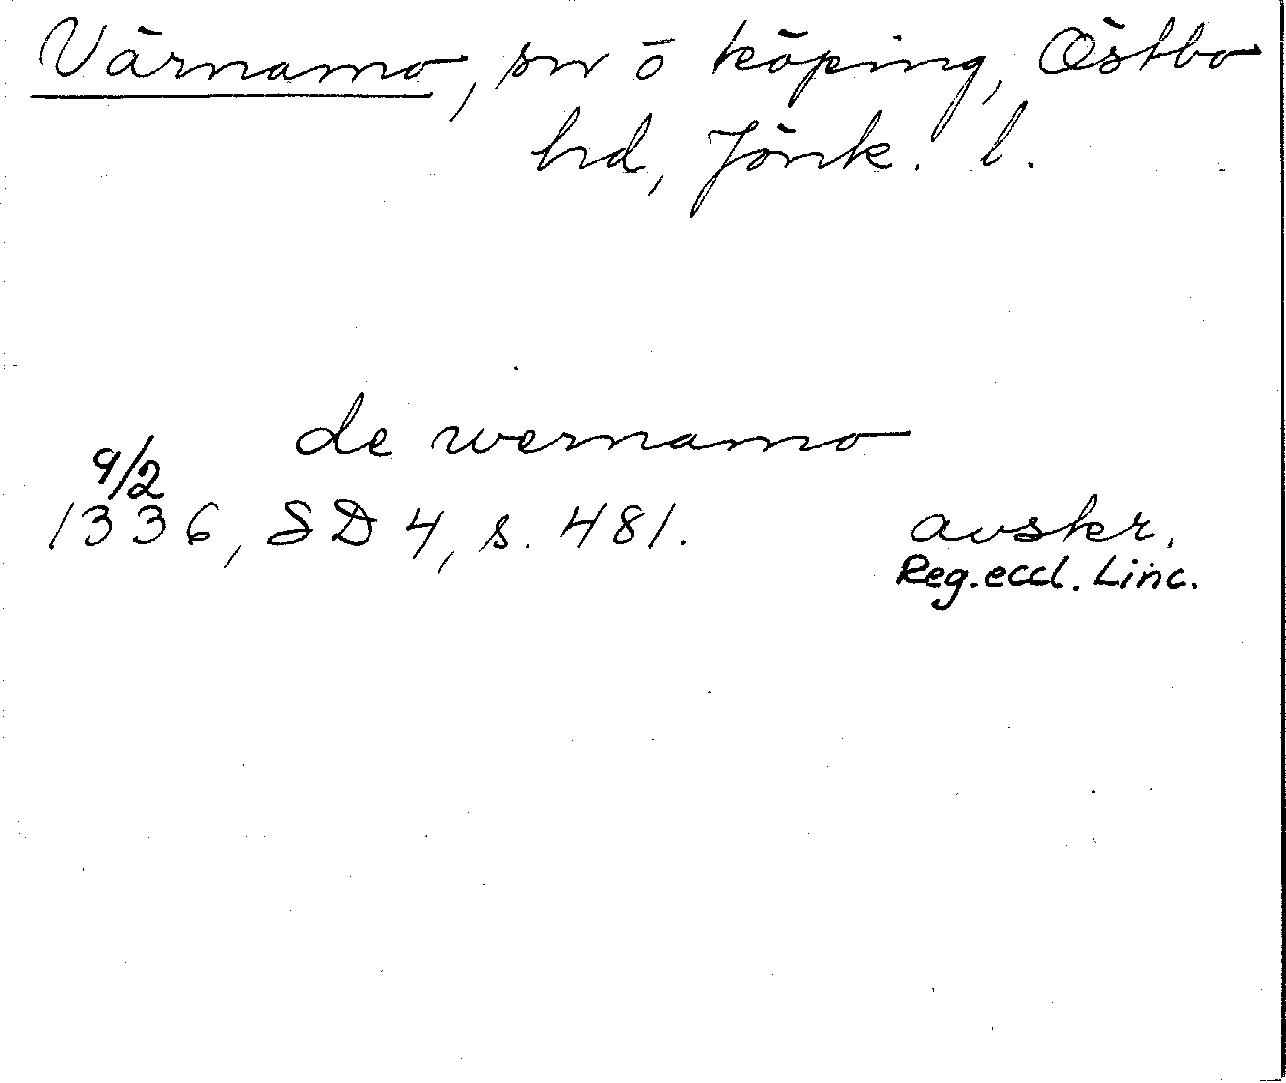 Värnamo, sn o köping, Östbo
hd, Jönk. l.
de wernamo
9/2
1336, SD 4, s. 481. avskr.
Reg. eccl. Linc.